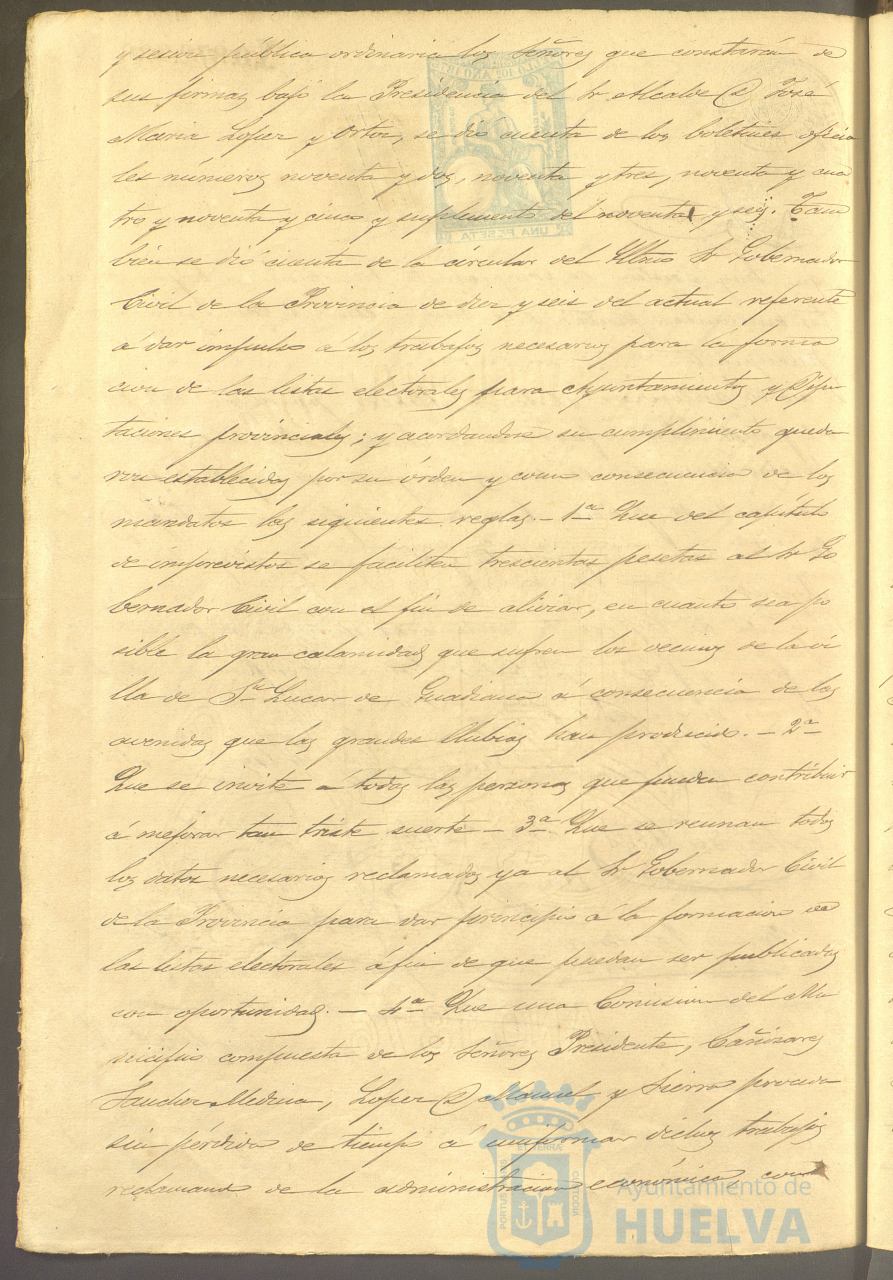 y sesion pública ordinaria los Señores que constarán de
sus firmas bajo la Presidencia del Sr Alcalde D José
Maria Lopez y Ortiz, se dió cuenta de los boletines oficia
les números noventa y dos, noventa y tres, noventa y cua
tro y noventa y cinco y suplemento del noventa y seis. Tam
bien se dió cuenta de la circular del Sr Gobernador
Civil de la Provincia de diez y seis del actual referente
a dar impulso á los trabajos necesarios para la forma
cion de las listas electorales para Ayuntamientos y Dipu
taciones provinciales; y acordandose su cumplimiento queda
ron establecidas por su órden y como consecuencia de los
mandatos las siguientes reglas. - 1ª Que del capítulo
de imprevistos se faciliten trescientas pesetas al Sr Go
bernador Civil con el fin de aliviar, en cuanto sea po
sible la gran calamidad que sufren los vecinos de la vi
lla de Sn Lucar de Guadiana á consecuencia de las
avenidas que las grandes lluvias han producido. - 2ª
Que se invite á todas las personas que puedan contribuir
á mejorar tan triste suerte - 3ª Que se reunan todos
los datos necesarios reclamados ya al Sr Gobernador Civil
de la Provincia para dar principio á la formacion de
las listas electorales á fin de que puedan ser publicadas
con oportunidad. - 4ª Que una Comision del Mu
nicipio compuesta de los Señores Presidente, Cañizares
Sanchez Medina, Lopez D Manuel y Sierra proceda
sin pérdida de tiempo á uniformar dichos trabajos
reclamand de la administracion económica como
UNA PESETA
PORTUS
ET TERRÆ
CUSTODIA
Ayuntamiento de
HUELVA